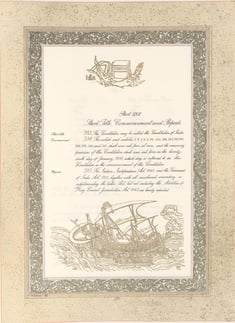 Part XXII
Short Title, Commencement and Repeals
Short title.
393. This Constitution may be called the Constitution of India.
Commencement.
394. This article and articles 5, 6, 7, 8, 9, 60, 324, 366, 367, 
shall come into force at once, and the remaining
provisions of this Constitution shall come into force on the twenty
sixth day of January, 1950, which day is referred to in this
Constitution as the commencement of this Constitution.
Repeals.
395. The Indian Independence Act, 1947, and the Government
of India Act, 1935, together with all enactments amending or
supplementing the latter Act, but not including the Abolition of
Privy Council Jurisdiction Act, 1949, are hereby repealed.